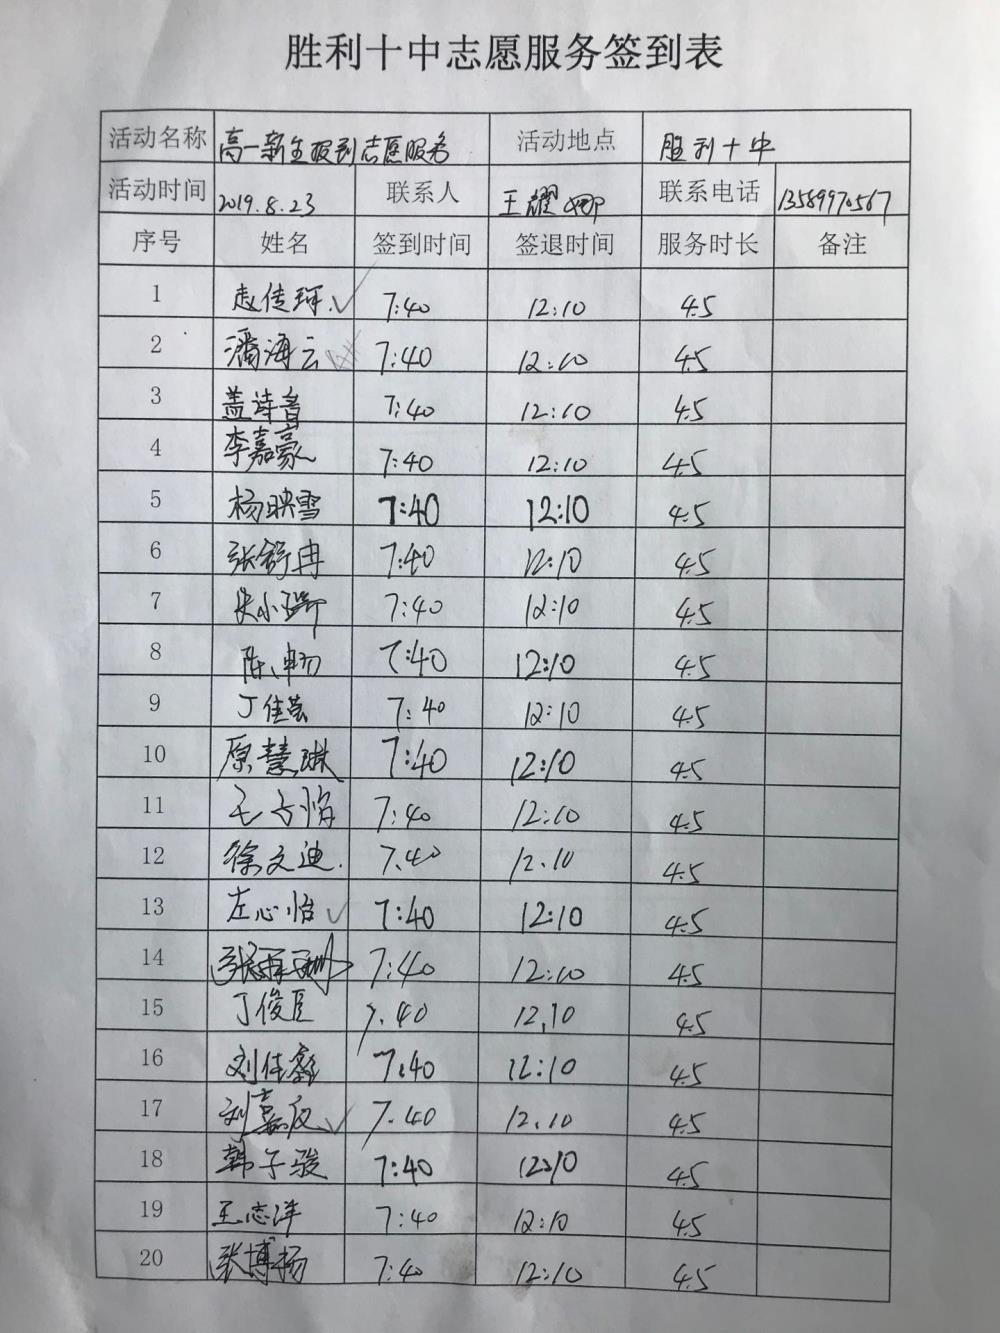 胜利十中志愿服务签到表
活动名称 高一新生报到志愿服务 活动地点 胜利十中
活动时间 2019.8.23 联系人 王耀娜 联系电话 13589970567
序号 姓名 签到时间 签退时间 服务时长 备注
1 赵传珂 7:40 12:10 4.5
2 潘海云 7:40 12:10 4.5
3 盖诗音 7:40 12:10 4.5
4 李嘉豪 7:40 12:10 4.5
5 杨映雪 7:40 12:10 4.5
6 张舒冉 7:40 12:10 4.5
7 7:40 12:10 4.5
8 陈畅 7:40 12:10 4.5
9 丁佳芸 7:40 12:10 4.5
10 原慧琳 7:40 12:10 4.5
11 王方怡 7:40 12:10 4.5
12 徐文迪 7.40 12.10 4.5
13 左心怡 7:40 12:10 4.5
14 7:40 12:10 4.5
15 丁俊臣 7.40 12.10 4.5
16 刘佳鑫 7:40 12:10 4.5
17 7.40 12.10 4.5
18 韩子骏 7:40 12:10 4.5
19 王志洋 7:40 12:10 4.5
20 张博扬 7:40 12:10 4.5